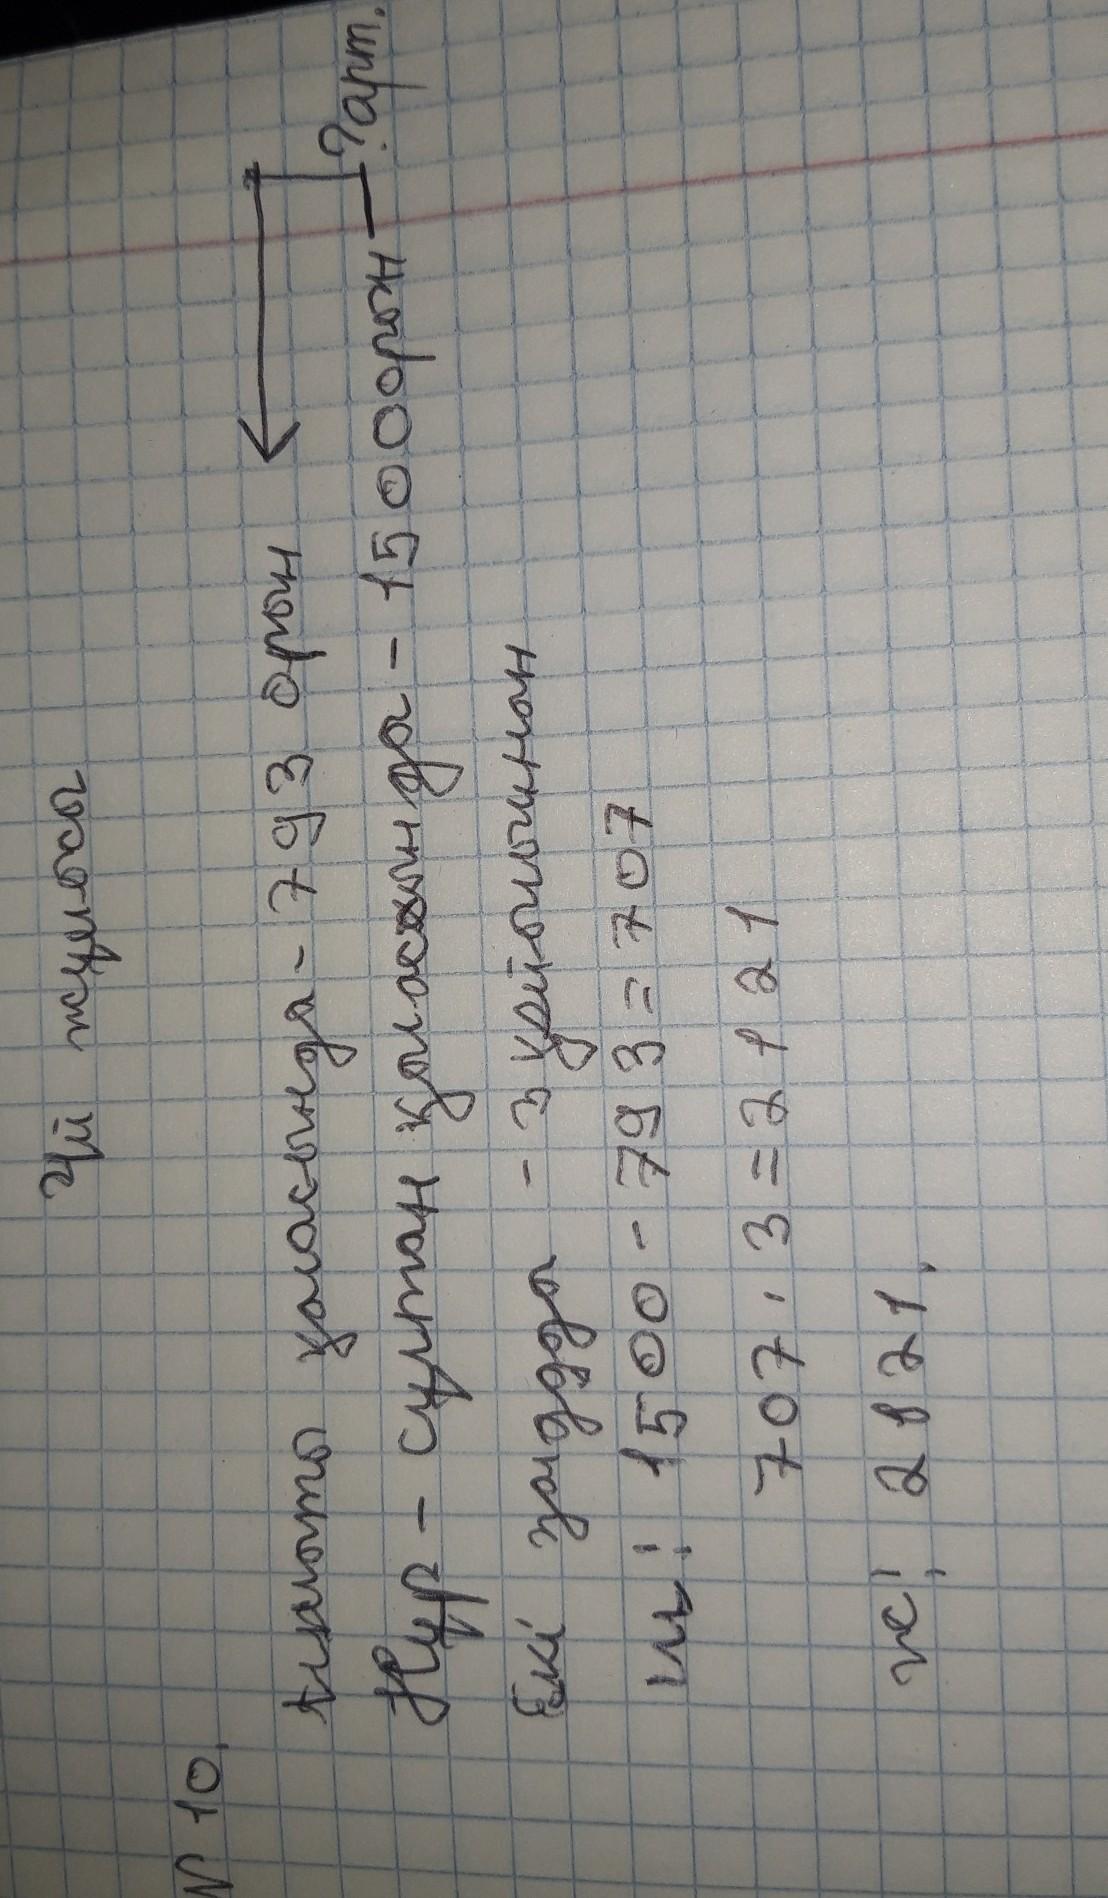 Үй жұмысы
№ 10.
Алматы қаласында - 793 орын
? арт.
Нұр - сұлтан қаласында - 1500 орын
Екі залда - 3 қойылыммен
Ш: 1500 - 793 = 707
707 · 3 = 2121
Ж: 2121.